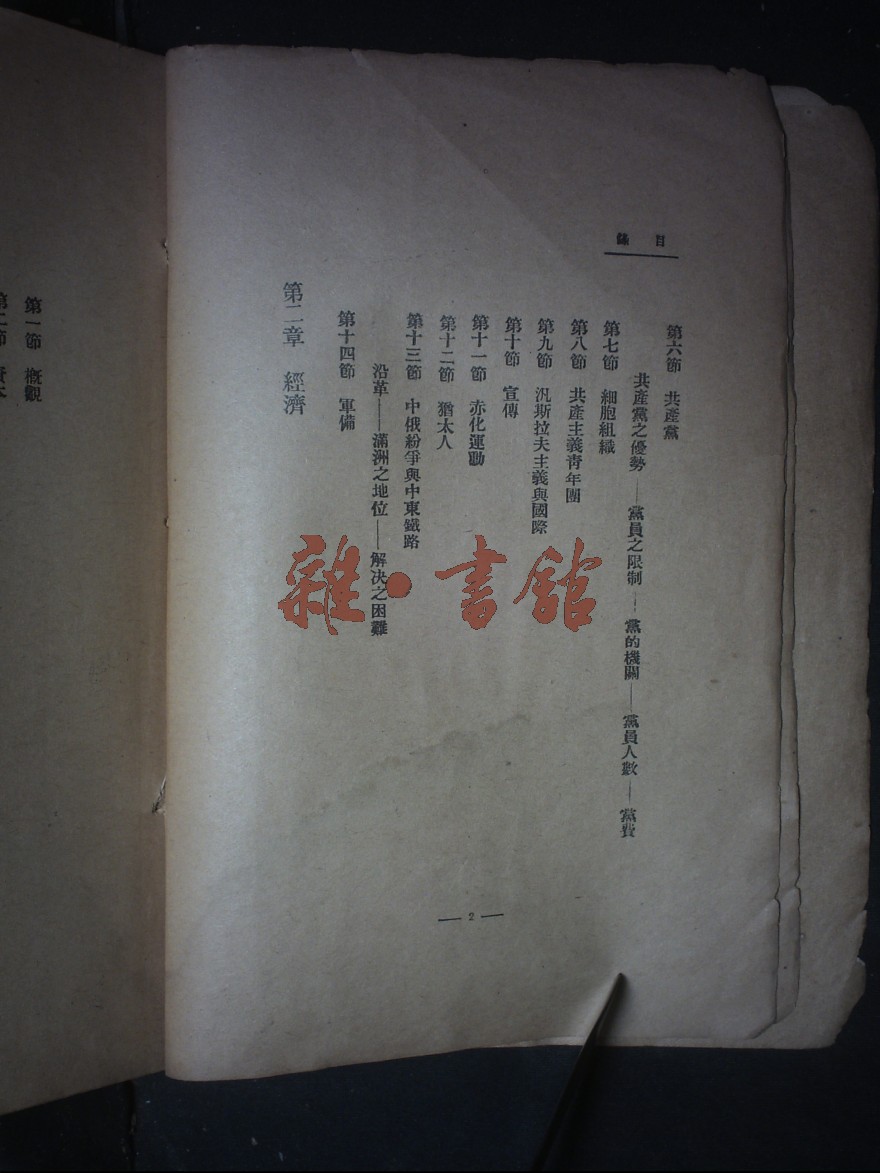 目錄
第六節 共產黨
共產黨之優勢——黨員之限制——黨的機關——黨員人數——黨費
第七節 細胞組織
第八節 共產主義青年團
第九節 汎斯拉夫主義與國際
第十節 宣傳
第十一節 赤化運動
第十二節 猶太人
第十三節 中俄紛爭與中東鐵路
沿革——滿洲之地位——解決之困難
第十四節 軍備
第二章 經濟
— 2 —
第一節 概觀
第二節 資本
雜·書館